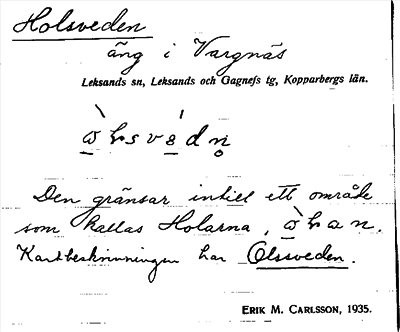 Holsveden
äng i Vargnäs
Leksands sn, Leksands och Gagnefs tg, Kopparbergs län.
Den gränsar intill ett område
som kallas Holarna,
Kartbeskrivningen har Olssveden.
ERIK M. CARLSSON, 1935.